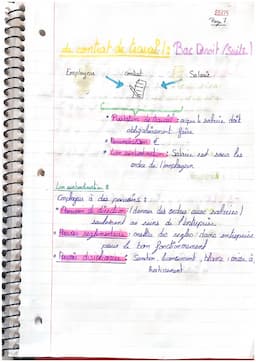 Page 1
du contrat de travail : Bac Droit (suite)
Employeur contrat Salarié
• Prestation de travail : ce que le salarié doit
obligatoirement faire
• Rémunération €
• Lien subordination : Salarié est sous les
ordre de l'employeur
Lien subordination :
Employeur à des pouvoirs :
• Pouvoir de direction (donner des ordres aux salariés)
seulement au seins de l'entreprise.
• Pouvoir réglementaire : mettre des règles dans entreprise
pour le bon fonctionnement
• Pouvoir disciplinaire : Sanction, licenciement, blâme : mise à